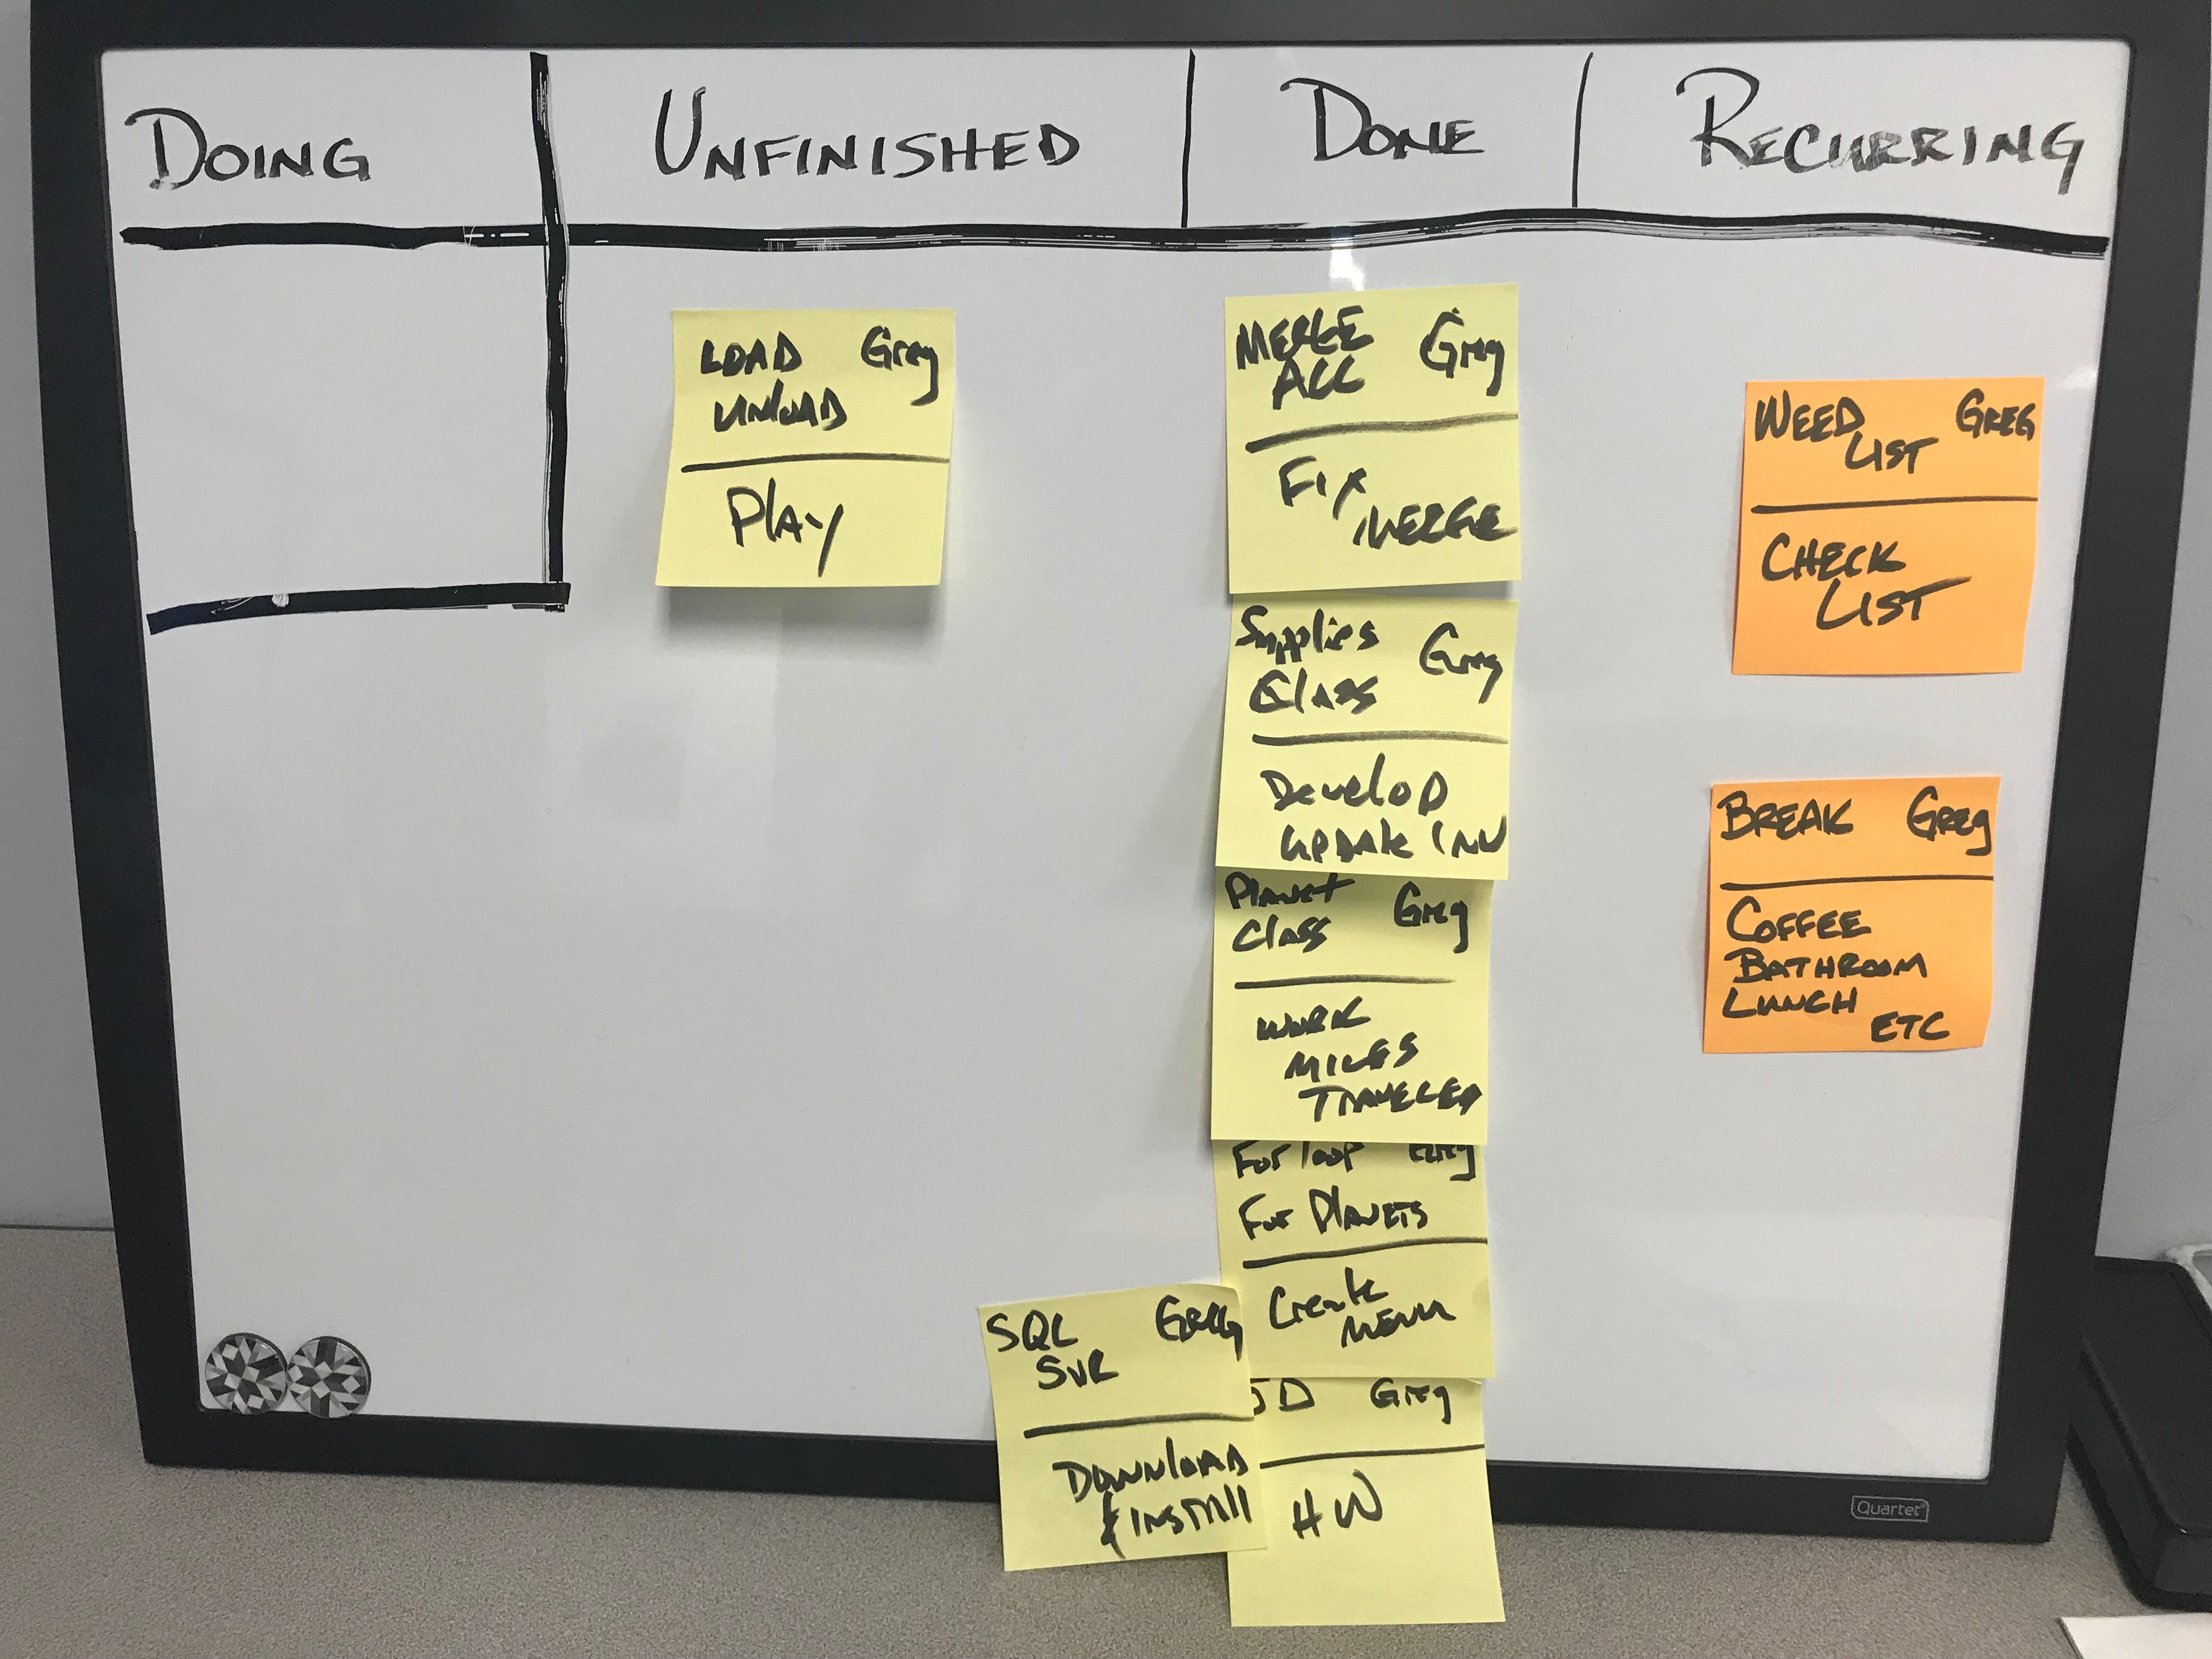 DOING
UNFINISHED
DONE
RECURRING
LOAD Greg
UNLOAD
PLAY
MERGE Greg
ACC
FIX
MERGE
Supplies Greg
Class
Develop
UPDATE INV
Planet Greg
Class
WORK
MILES
TRAVELED
For loop Greg
For Planets
Create
MENU
SQL Greg
SVR
DOWNLOAD
& INSTALL
Greg
HW
WEED GREG
LIST
CHECK
LIST
BREAK Greg
COFFEE
BATHROOM
LUNCH
ETC
Quartet